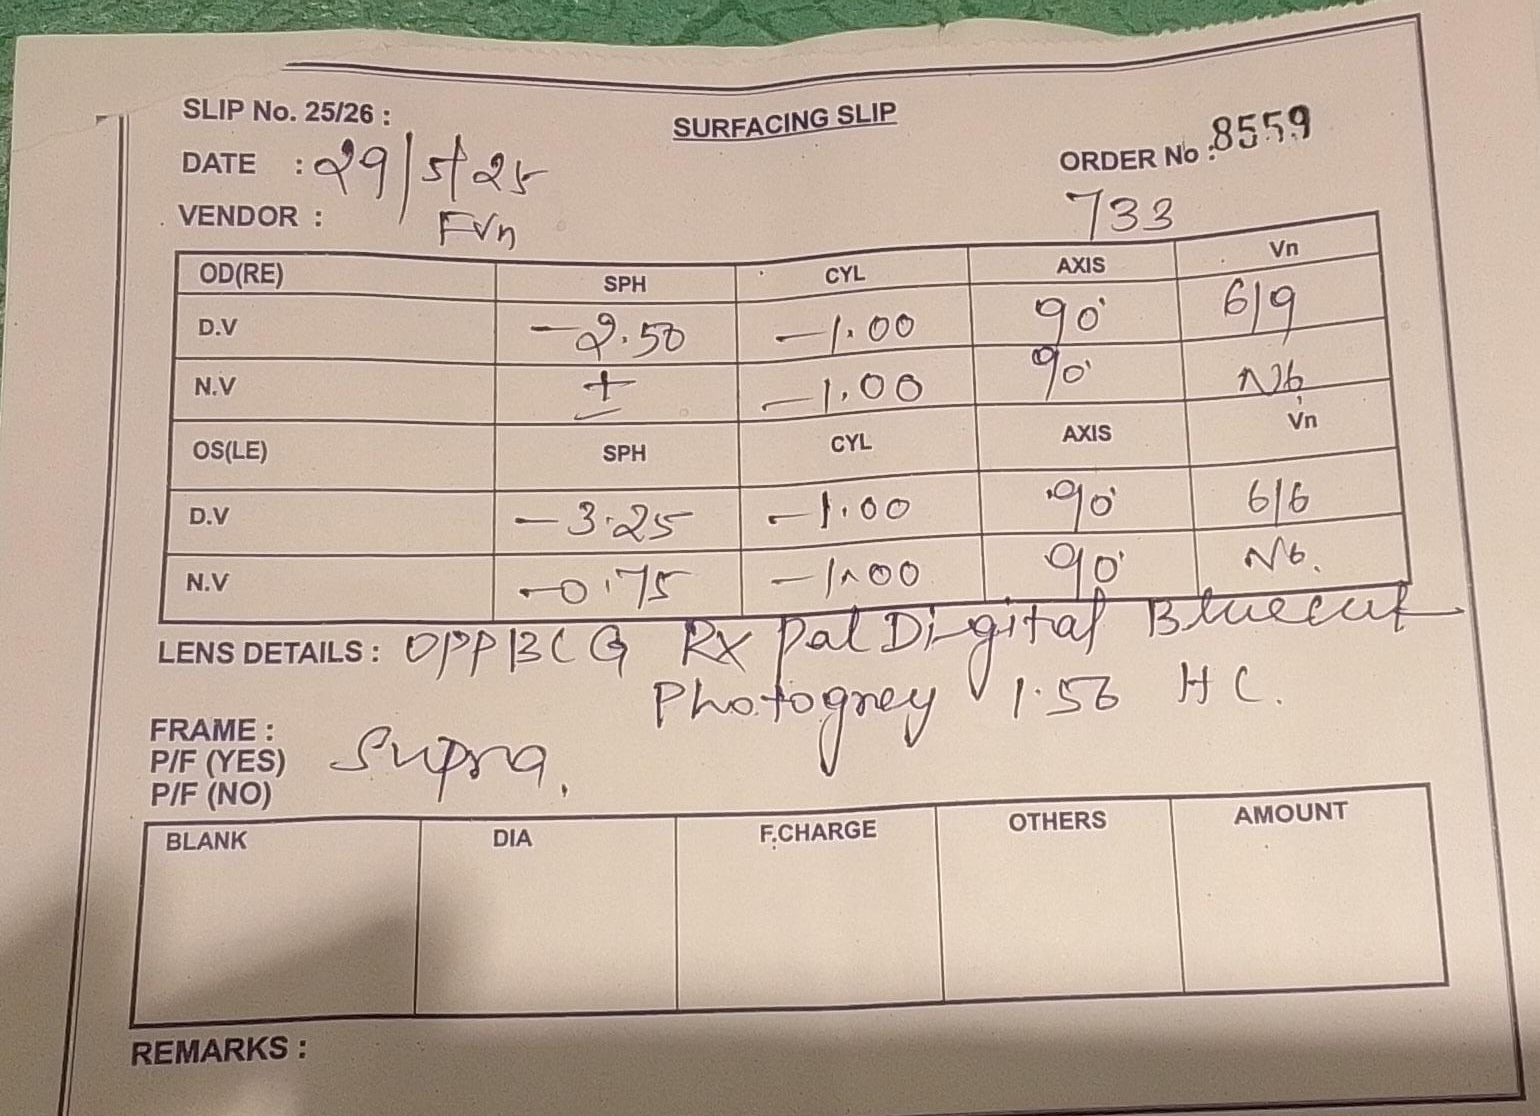 SLIP No. 25/26 :
SURFACING SLIP
ORDER No : 8559
DATE : 29/5/25
733
VENDOR : Fvn
OD(RE) SPH CYL AXIS Vn
D.V -2.50 -1.00 90° 6/9
N.V ± -1.00 90° N6
OS(LE) SPH CYL AXIS Vn
D.V -3.25 -1.00 90° 6/6
N.V -0.75 -1.00 90° N6.
LENS DETAILS : OPPBCG RX Pal Digital Bluecut
Photogrey 1.56 HC.
FRAME :
P/F (YES) Supra.
P/F (NO)
BLANK DIA F.CHARGE OTHERS AMOUNT
REMARKS :